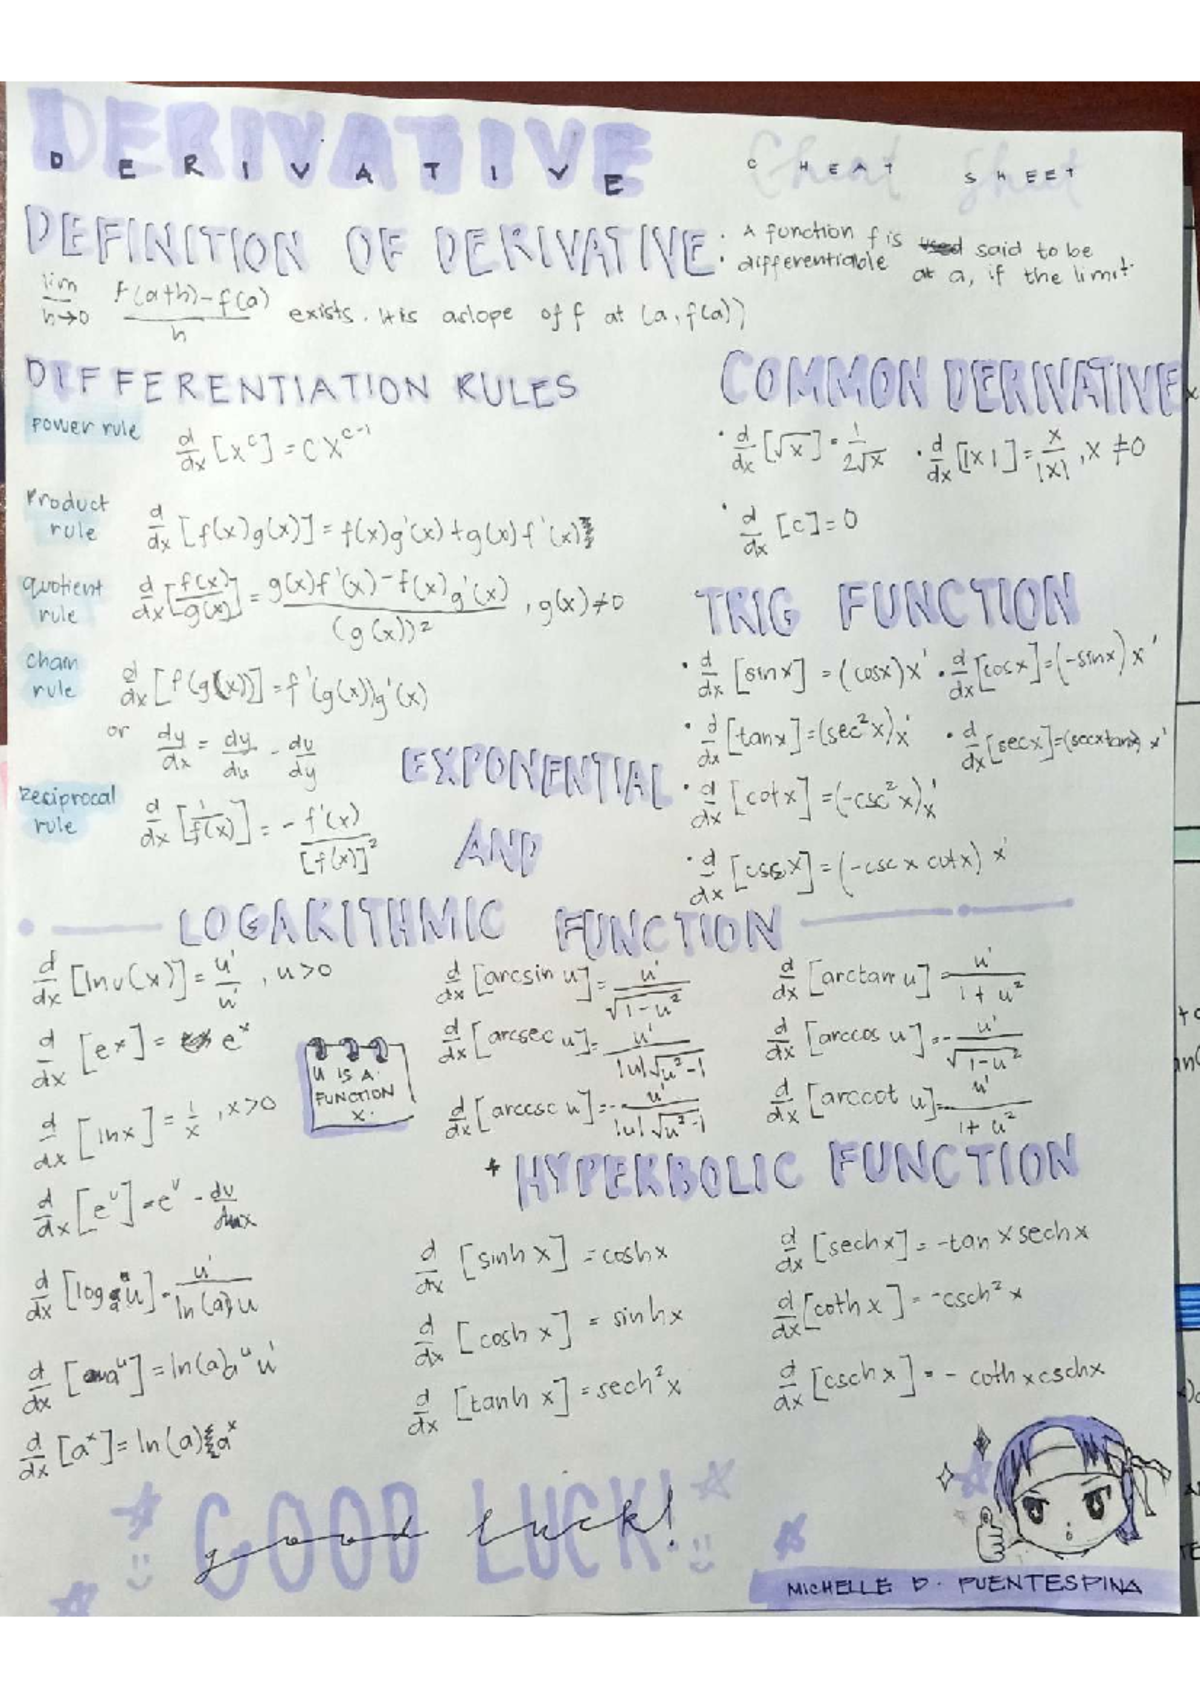 DERIVATIVE
DERIVATIVE
Cheat Sheet
CHEAT SHEET
DEFINITION OF DERIVATIVE
· A function f is said to be
· differentiable at a, if the limit
lim h→0 f(a+h)-f(a) / h exists. It is aslope of f at (a, f(a))
DIFFERENTIATION RULES
power rule
d/dx [x^c] = cx^(c-1)
Product rule
d/dx [f(x)g(x)] = f(x)g'(x)+g(x)f'(x)
quotient rule
d/dx [f(x)/g(x)] = g(x)f'(x)-f(x)g'(x) / (g(x))², g(x)≠0
chain rule
d/dx [f(g(x))] = f'(g(x))g'(x)
or dy/dx = dy/du - du/dy
Reciprocal rule
d/dx [1/f(x)] = - f'(x)/[f(x)]²
COMMON DERIVATIVE
· d/dx [√x] = 1/2√x · d/dx [|x|] = x/|x|, x≠0
· d/dx [c] = 0
TRIG FUNCTION
· d/dx [sinx] = (cosx)x' · d/dx [cosx] = (-sinx)x'
· d/dx [tanx] = (sec²x)x' · d/dx [secx] = (secxtanx)x'
· d/dx [cotx] = (-csc²x)x'
· d/dx [cscx] = (-cscx cotx)x'
EXPONENTIAL
AND
LOGARITHMIC FUNCTION
d/dx [lnu(x)] = u'/u', u>0
d/dx [e^x] = e^x
d/dx [lnx] = 1/x, x>0
d/dx [e^u] = e^u - du/dx
d/dx [log_a u] = u'/ln(a)u
d/dx [a^u] = ln(a)a^u u'
d/dx [a^x] = ln(a)a^x
U IS A
FUNCTION
X.
d/dx [arcsin u] = u'/√1-u²
d/dx [arctan u] = u'/1+u²
d/dx [arcsec u] = u'/|u|√u²-1
d/dx [arccos u] = - u'/√1-u²
d/dx [arccsc u] = - u'/|u|√u²-1
d/dx [arccot u] = - u'/1+u²
* HYPERBOLIC FUNCTION
d/dx [sinh x] = coshx
d/dx [sechx] = -tanxsechx
d/dx [cosh x] = sinhx
d/dx [coth x] = -csch²x
d/dx [tanh x] = sech²x
d/dx [csch x] = - cothxcschx
GOOD LUCK!
good luck!
MICHELLE D. PUENTESPINA